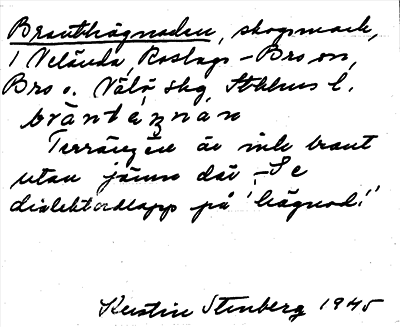 Branthägnaden, skogsmark,
i Velända, Roslags-Bro sn,
Bro o. Vätö skg, Sthlms l.
bràntäznàn
Terrängen är inte brant
utan jämn där. Se
dialektordlapp på 'hägnad'!
Kerstin Stenberg 1945